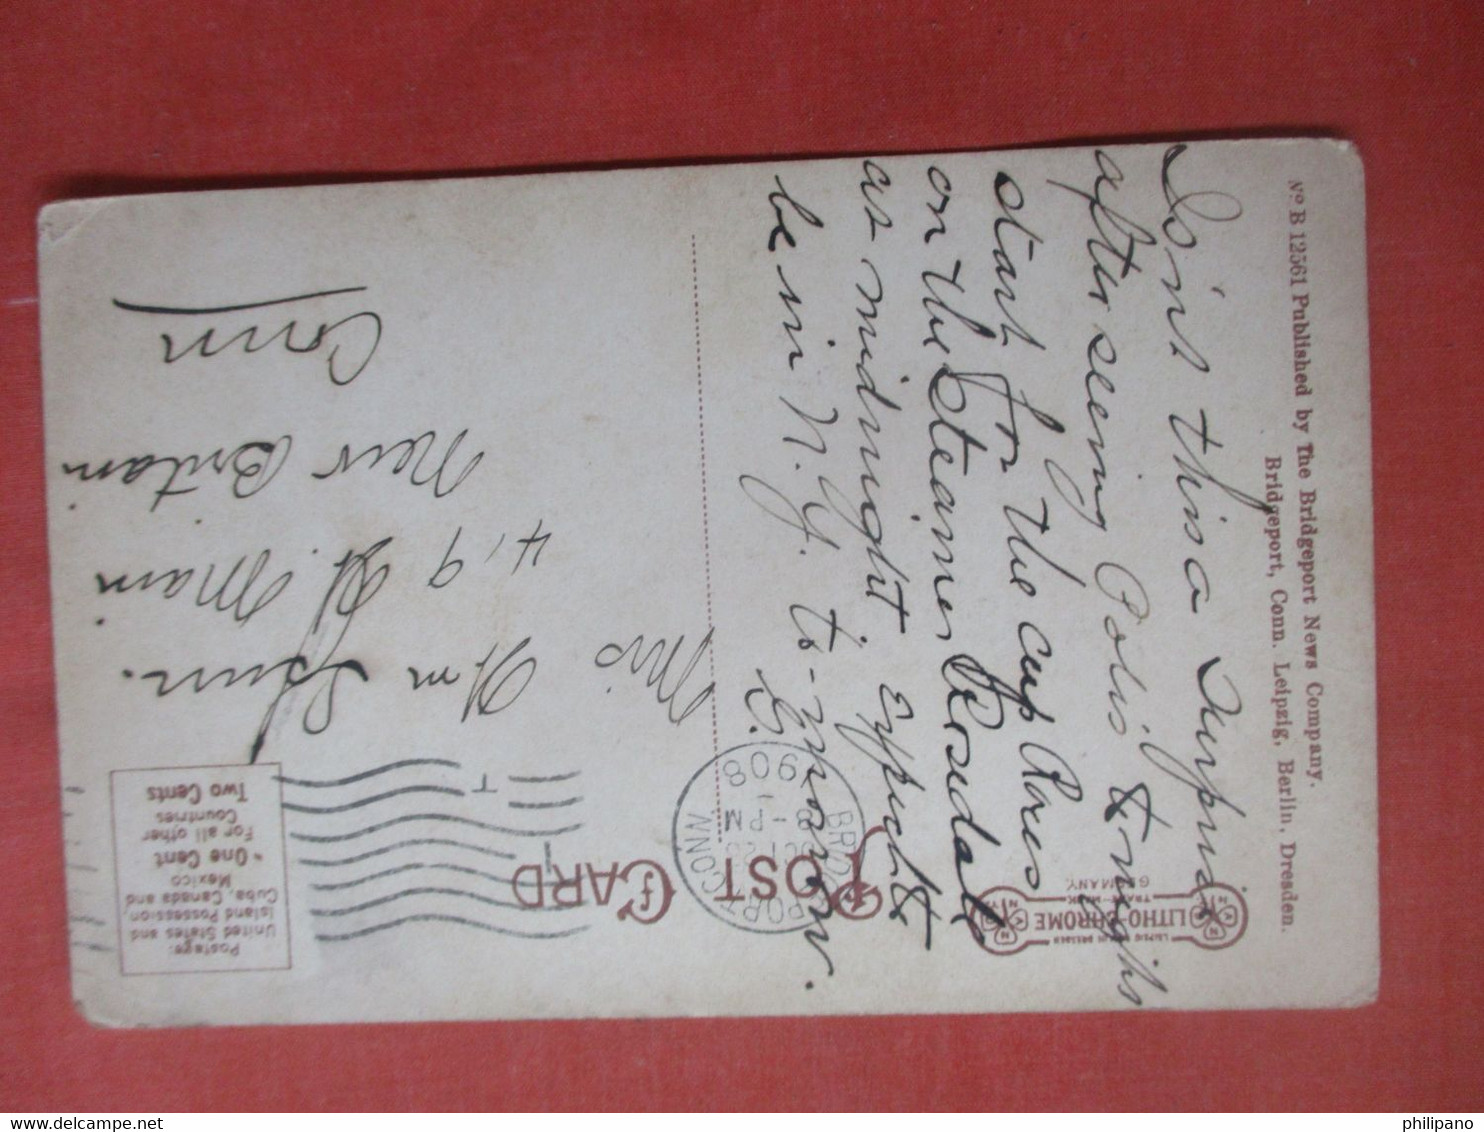 Nº B 12561 Published by The Bridgeport News Company.
Bridgeport, Conn. Leipzig, Berlin, Dresden.
Is'nt this a Surprise
after seeing Polis tonight
start for the cup Races
on the Steamer Rosedale
as midnight expect to
be in N. Y. to-morrow.
POST CARD
LITHO-CHROME
TRADE MARK
GERMANY.
BRIDGEPORT, CONN.
OCT 23
8-PM
1908
Postage:
United States and
Island Possession,
Cuba, Canada and
Mexico
One Cent
For all other
Countries
Two Cents
Mrs
Wm
419
St. Main
New Britain
Conn
philipano
delcampe.net